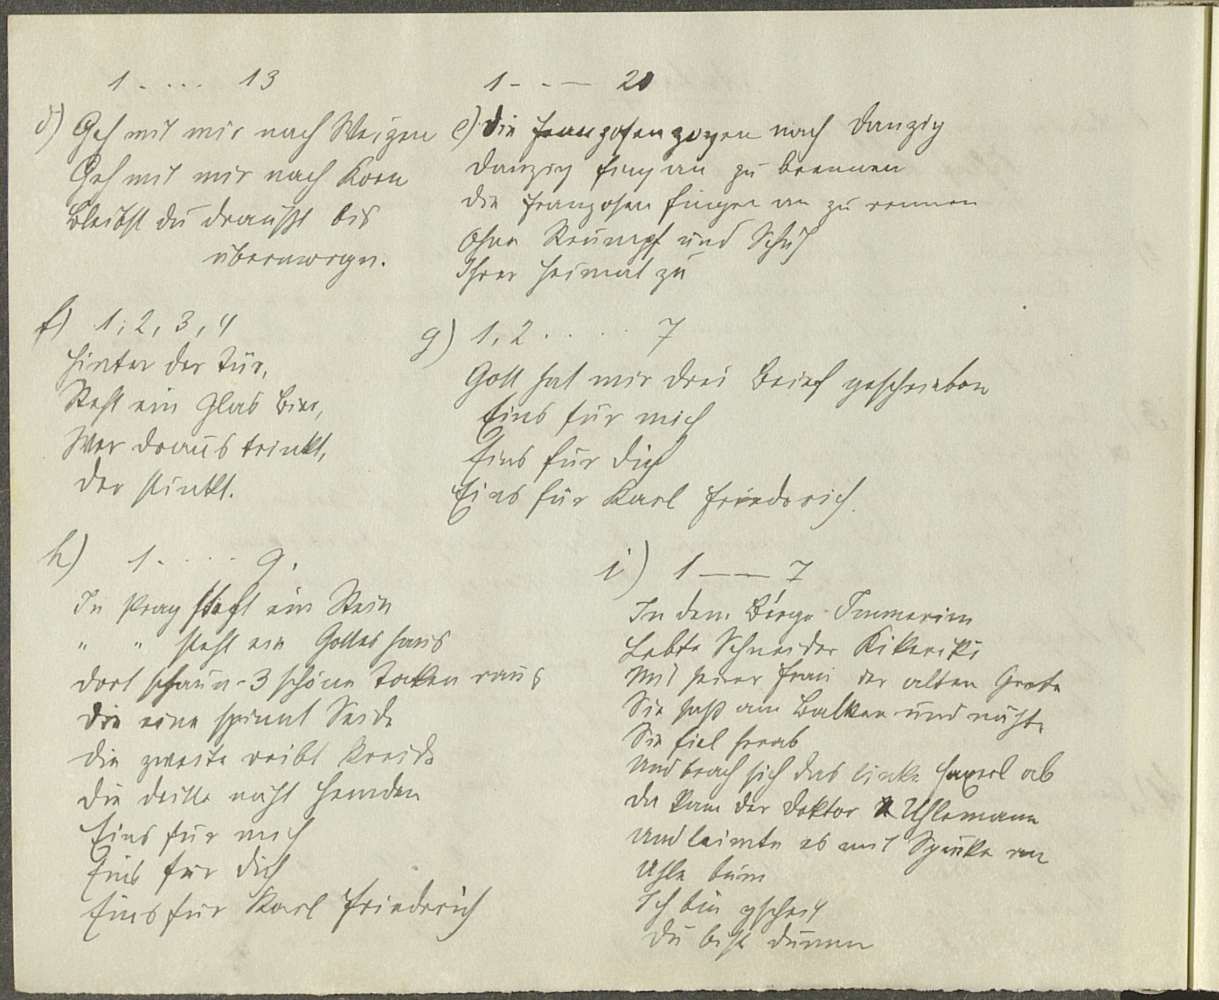 1 . . . . 13
d) Geh mit mir nach Weizen
Geh mit mir nach Korn
Bleibst du draußt bis
übermorgn.
1 - - — 20
e) Die Franzosen zogen nach Danzig
Danzig fing an zu brennen
Die Franzosen fingen an zu rennen
Ohne Strumpf und Schuh
Ihrer Heimat zu
f) 1, 2, 3, 4
Hinter der Tür,
Steht ein Glas Bier,
Wer draus trinkt,
Der stinkt.
g) 1, 2 . . . . . 7
Gott hat mir drei Brief geschrieben
Eins für mich
Eins für dich
Eins für Karl Friedrich.
h) 1 . . . . . 9.
In Prag steht ein Stein
" " steht ein Gotteshaus
Dort schaun 3 schöne Tocken raus
Die eine spinnt Seide
Die zweite reibt Kreide
Die dritte näht Hemden
Eins für mich
Eins für dich
Eins für Karl Friedrich
i) 1 — — 7
In dem Berge
Lebte Schneider Kikeriki
Mit seiner Frau der alten Grete
Sie saß am Balkon und nähte
Sie fiel herab
Und brach sich das linke Haxerl ab
Da kam der Doktor Uhlemann
Und leimte es mit Spucke an
Uhle bum
Ich bin gscheit
Du bist dumm